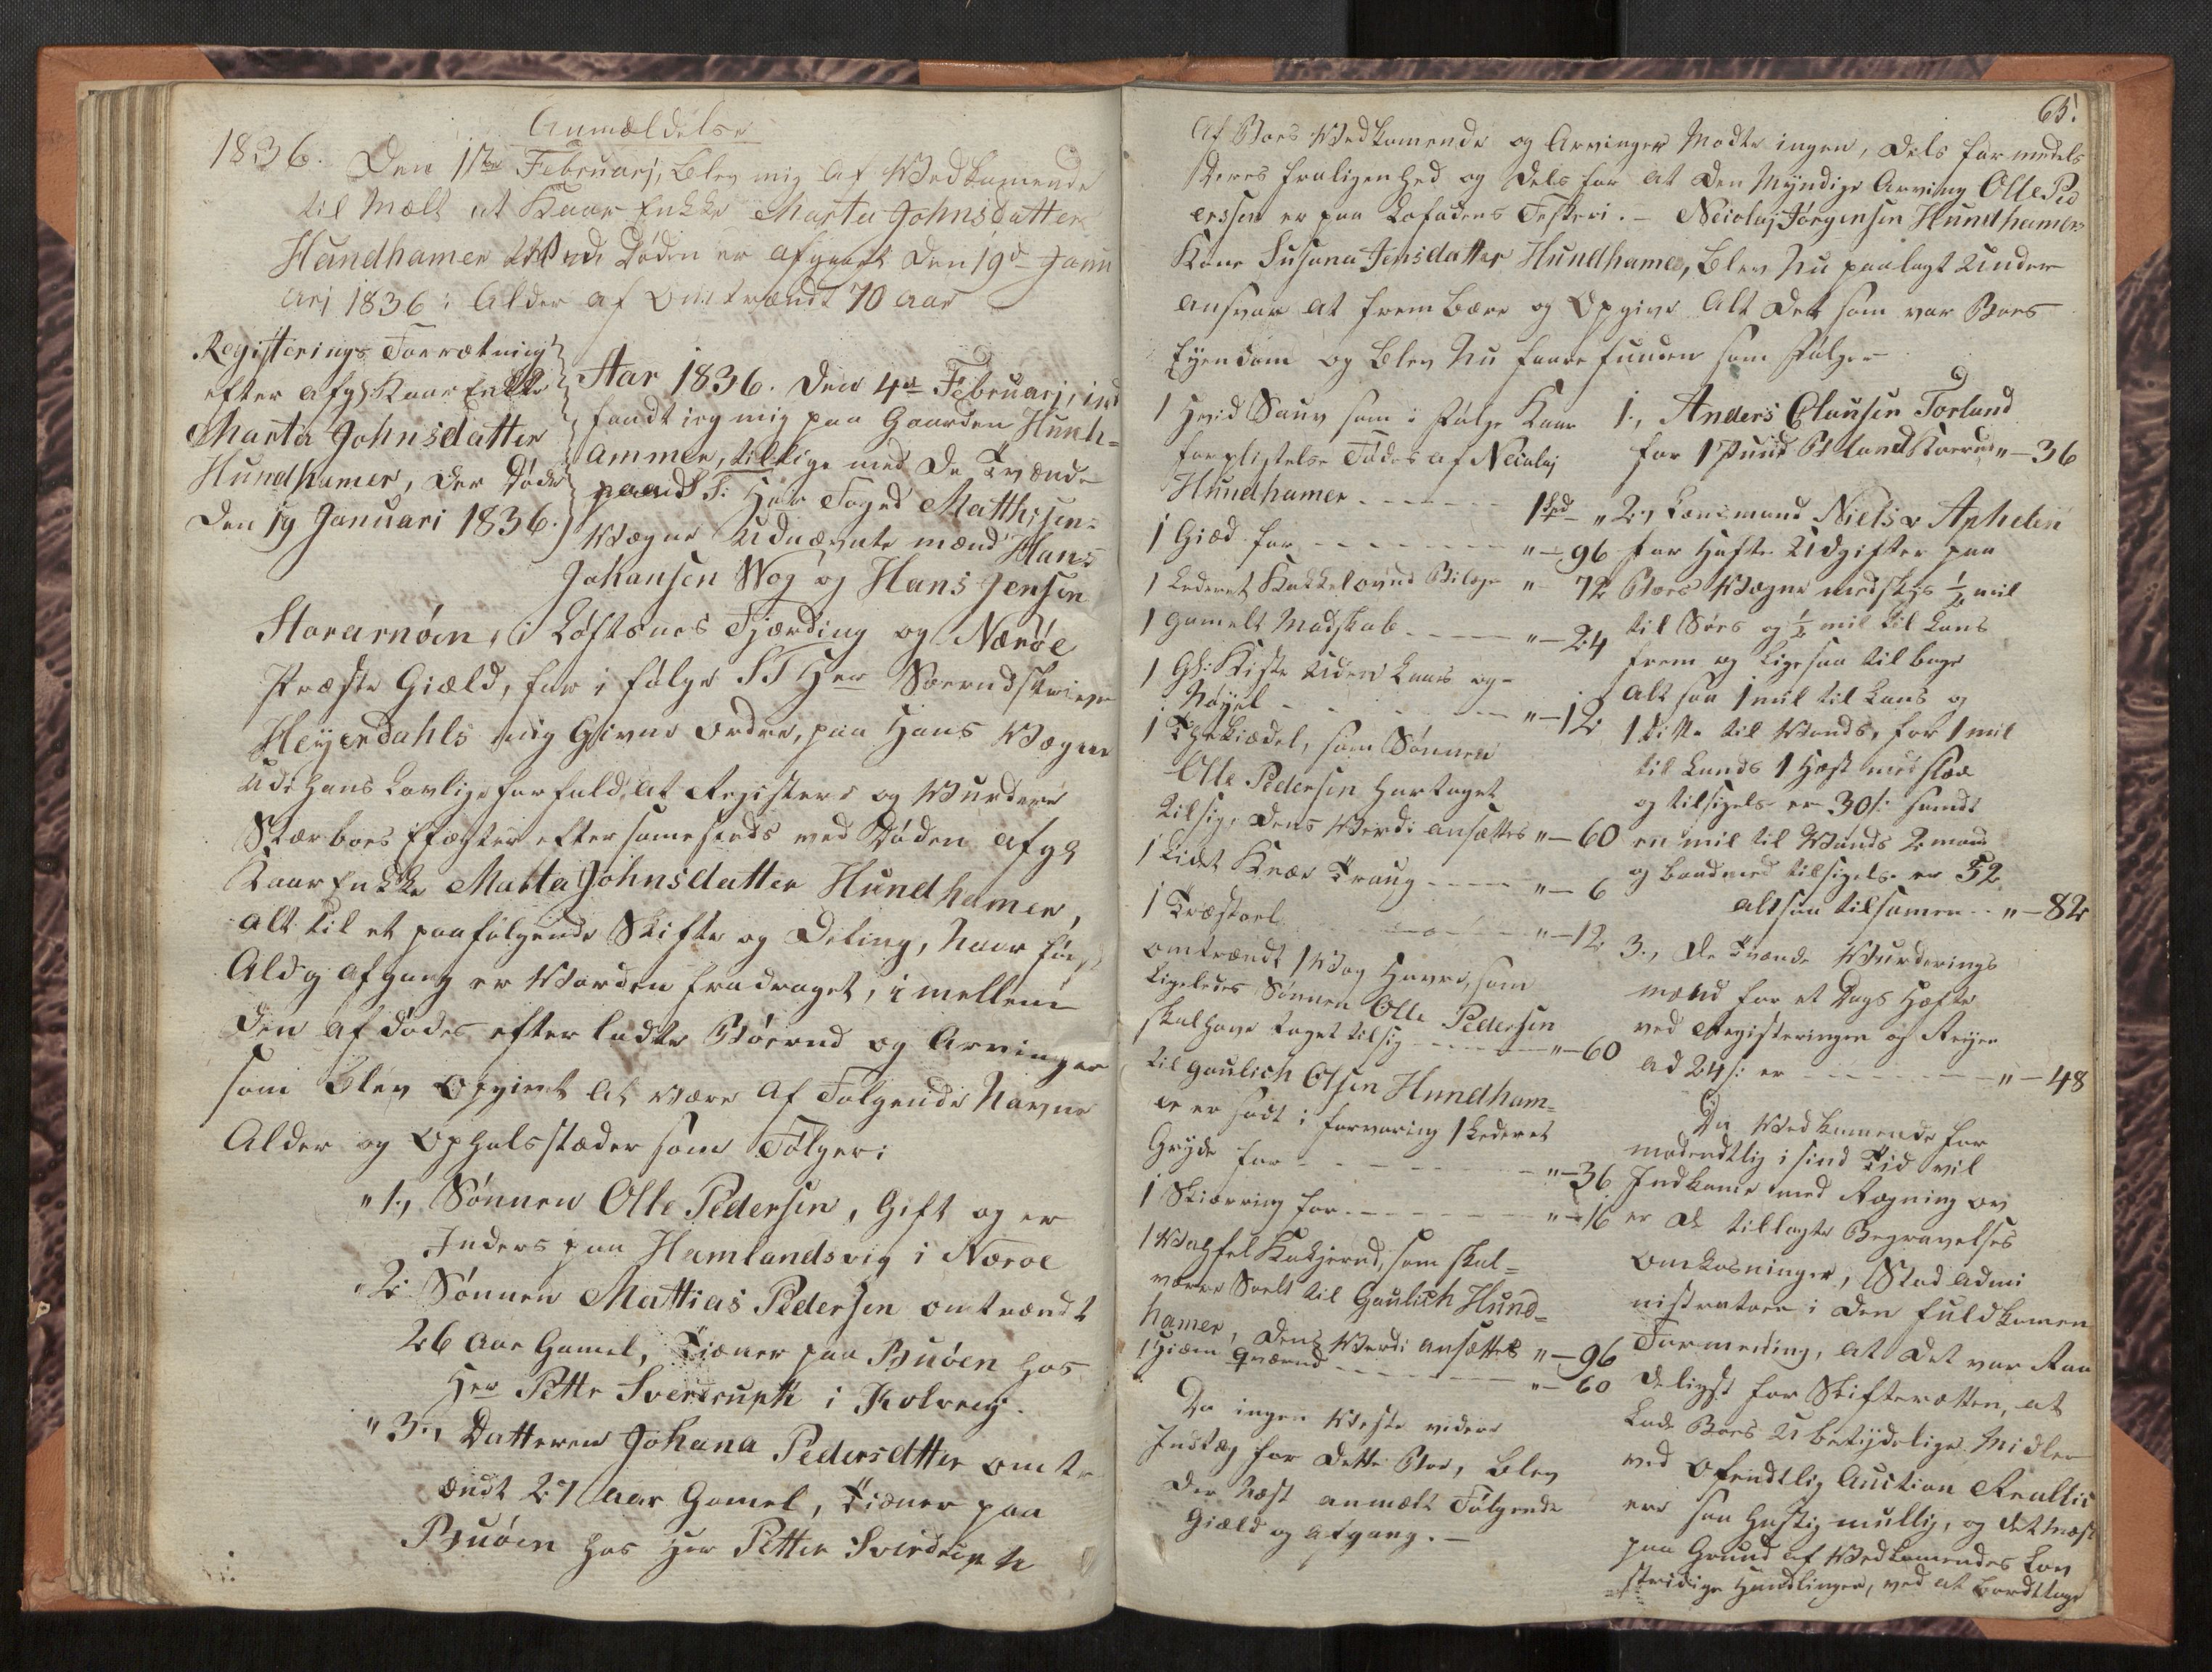 Anmældelse
1836. Den 1ste Februarj, blev mig af Vedkomende
til Meldt at Kaar Enkke Marta Johnsdatter
Hundhamer ved Døden er afgaaet den 19de Janu
arj 1836 i Alder af Omtrændt 70 aar
Registerings Forrætning
efter afg: Kaar Enkke
Marta Johnsdatter
Hundhamer, der døde
den 19 Januari 1836.
Aar 1836. den 4de Februarj, ind
fandt ieg mig paa Gaarden Hunh-
ammer, tillige med de Tvænde
paa S: T: Her Foged Matthisens
Vægne Udnævnte mænd Hans
Johansen Wog og Hans Jensen
Horarnøen, i Løftsnes Fjærding og Nærøe
Præste Giæld, for i følge S T Her Sorendskriver
Heyerdahls mig Givne Ordre, paa Hans Vægne
udi hans Lovlige forfald, at Registere og Vurdere
Stærboes Effæcter eftersammesteds ved Døden afg:
Kaar Enkke Marta Johnsdatter Hundhamer,
alt til et paafølgende Skifte og Deling, naar først
Aldj afgang er Vorden fradraget, i mellem
den af dødes efter ladte Børnd og Arvinger
som blev Opgivet at være af Følgende Navne
Alder og Opholsstæder som Følger:
" 1., Sønnen Olle Pedersen, Gift og er
Inders paa Hamlandsvig i Nærøe
2: Sønnen Mattias Pedersen omtrændt
26 aar Gamel, Tiæner paa Buøen hos
Her Petter Sverdruph i Kolvreig.
" 3., Datteren Johana Pedersdtter omtr
ændt 27 aar Gamel, Tiæner paa
Buøen hos Her Petter Sverdruph
65.
Af Boes Vedkomende og Arvinger Mødte ingen, dels formedels
deres fraligenhed og dels for at den Myndige Arving Olle Ped
ersen er paa Lofodens Feskeri. - Neiolaj Jørgensen Hundhamer
Kone Susana Jensdatter Hundhamer, blev nu paalagt under
ansvar at frem bære og Opgive Alt det som var Boes
Eyendom og blev nu foare funden som følger
1 hvid Sauv som i følge Kaar
forplictelse Fødes af Neiolaj
Hundhamer - - - - 1 spd - "
1 Giæd for - - - - " - 96
1 Lederet Kakkelovnd Bilegr " - 72
1 gamelt Madskab - - - " - 24
1 Gl: Kiste uden Laas og
Nøgel - - - - " - 12
1 Thekiædel, som Sønnen
Olle Pedersen har taget
til sig, dens Verdi ansættes " - 60
1 Lidet Knæe Traug - - - " - 6
1 Træstoel - - - " - 12
omtrændt 1 Vog Havre, som
ligeledes Sønnen Olle Pedersen
skal have taget til sig - - - " - 60
til Gaulich Olsen Hundham-
er er sadt i forvaring 1 Lederet
Gryde for - - - - " - 36
1 Skiærring for - - - - " - 16
1 Vafel Kakjernd, som skal
være Soelt til Gaulich Hund-
hamer, dens Verdi ansættes " - 96
1 Hiæm Qværnd - - - - " - 60
Da ingen Viste videre
Indtæg for dette Boe, blev
der næst anmeldt Følgende
Giæld og Afgang. -
1., Anders Clausen Torland
for 1 Pund Bl land Koernd " - 36
2., Lænsmand Niels v Aphelen
for Hafte Udgifter paa
Boes Vægne med skys 1/2 mil
til Søes og 1/2 mil til Lans
frem og Ligesaa tilbage
alt saa 1 mil til Lans og
1 ditto til Vands, for 1 mil
til Lands 1 Hæst med slæe
og tilsigels er 30 s: samdt
en mil til Vands 2 mand
og baad med tilsigels er 52
altsaa tilsamen - - " - 82
3., De Tvænde Vurderings
mænd for et Dags Hæfte
ved Registeringen og Reyse
ad 24 s: er - - - - " - 48
Da Vedkomende for
modendtlig i sind Tid vil
Indkome med Regning ov
er de tillagte Begravelses
Omkosninger, Stod Admi
nistratoren i den fuldkomen
Formening, at det var Raa
deligst for Skifterætten, at
Lade Boes Ubetydelige Midler
ved Ofendtlig Auction Realise
res saa hastig mullig, og det næst
paa Grund af Vedkomendes Lov
stridige Handlinger, ved at bordttage